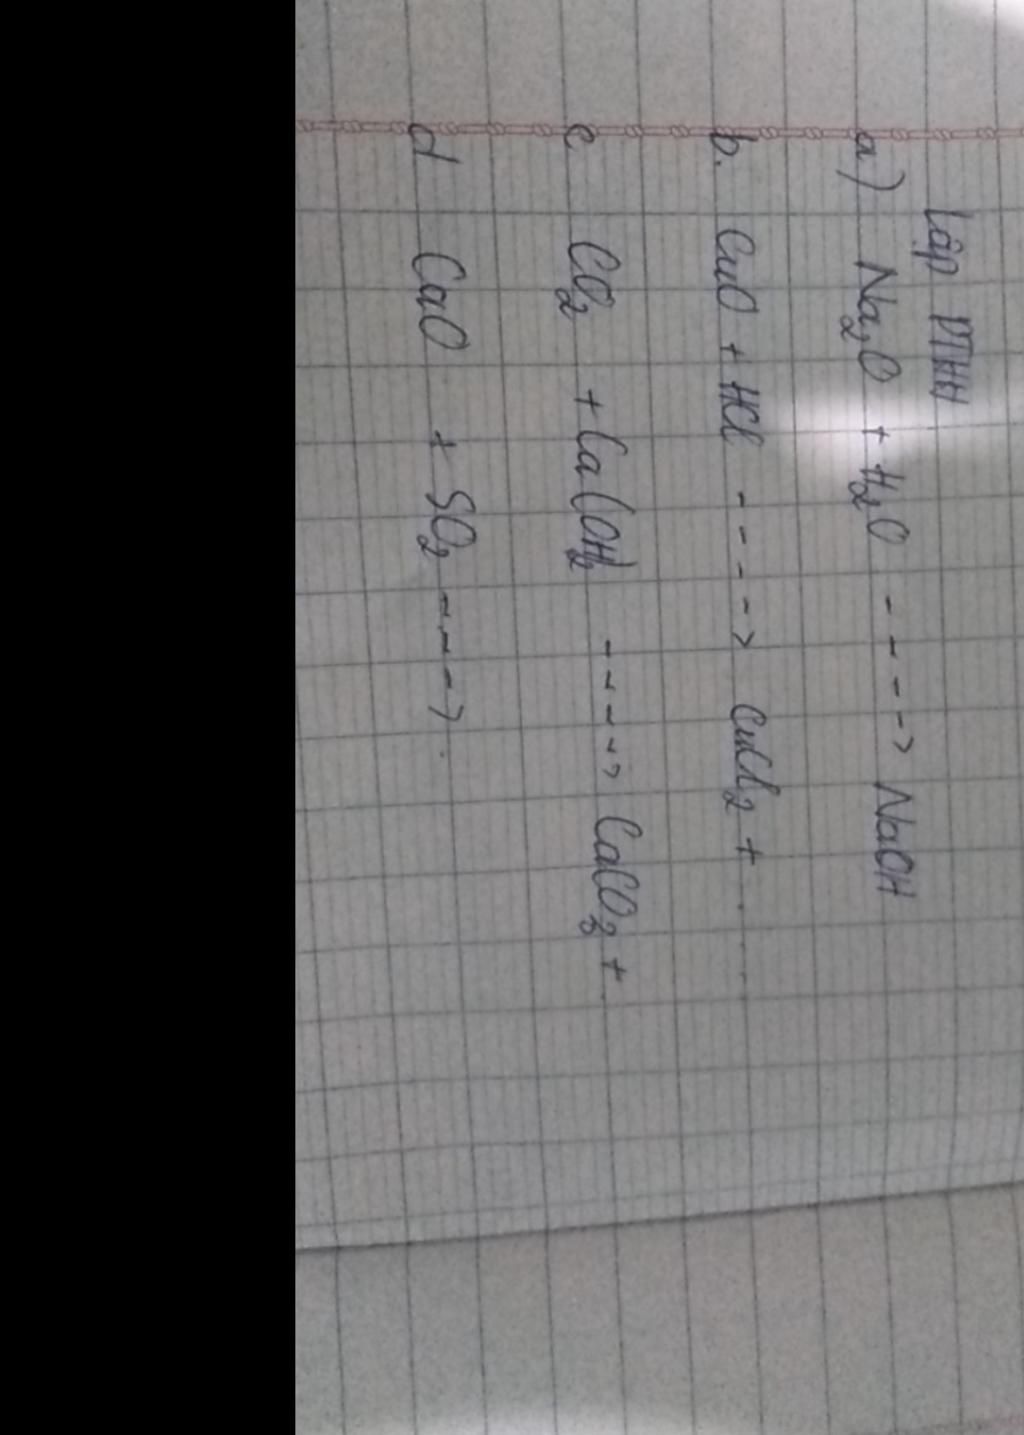 Lập PTHH
a) Na₂O + H₂O ----> NaOH
b. CuO + HCl ----> CuCl₂ + . . .
c CO₂ + Ca(OH)₂ ----> CaCO₃ + .
d CaO + SO₂ ----> .